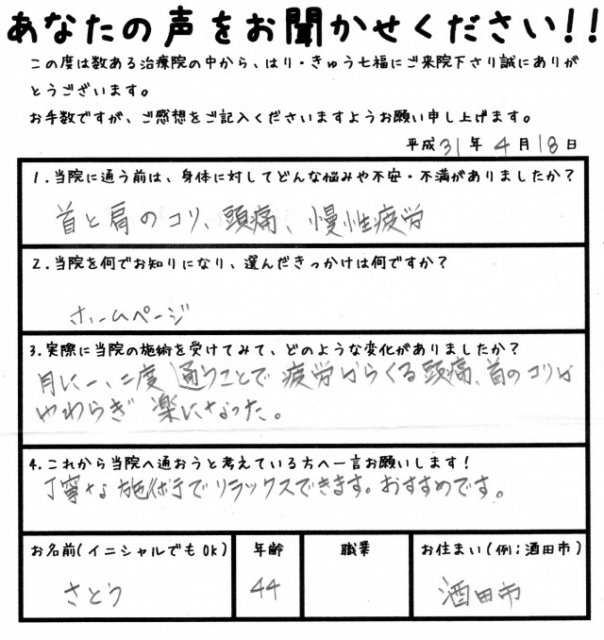 あなたの声をお聞かせください!!
この度は数ある治療院の中から、はり・きゅう七福にご来院下さり誠にありが
とうございます。
お手数ですが、ご感想をご記入くださいますようお願い申し上げます。
平成31年4月18日
1.当院に通う前は、身体に対してどんな悩みや不安・不満がありましたか?
首と肩のコリ、頭痛、慢性疲労
2.当院を何でお知りになり、選んだきっかけは何ですか?
ホームページ
3.実際に当院の施術を受けてみて、どのような変化がありましたか?
月に一、二度 通うことで 疲労からくる頭痛、首のコリが
やわらぎ 楽になった。
4.これから当院へ通おうと考えている方へ一言お願いします!
丁寧な施術でリラックスできます。おすすめです。
お名前(イニシャルでもOK) 年齢 職業 お住まい(例;酒田市)
さとう 44 酒田市